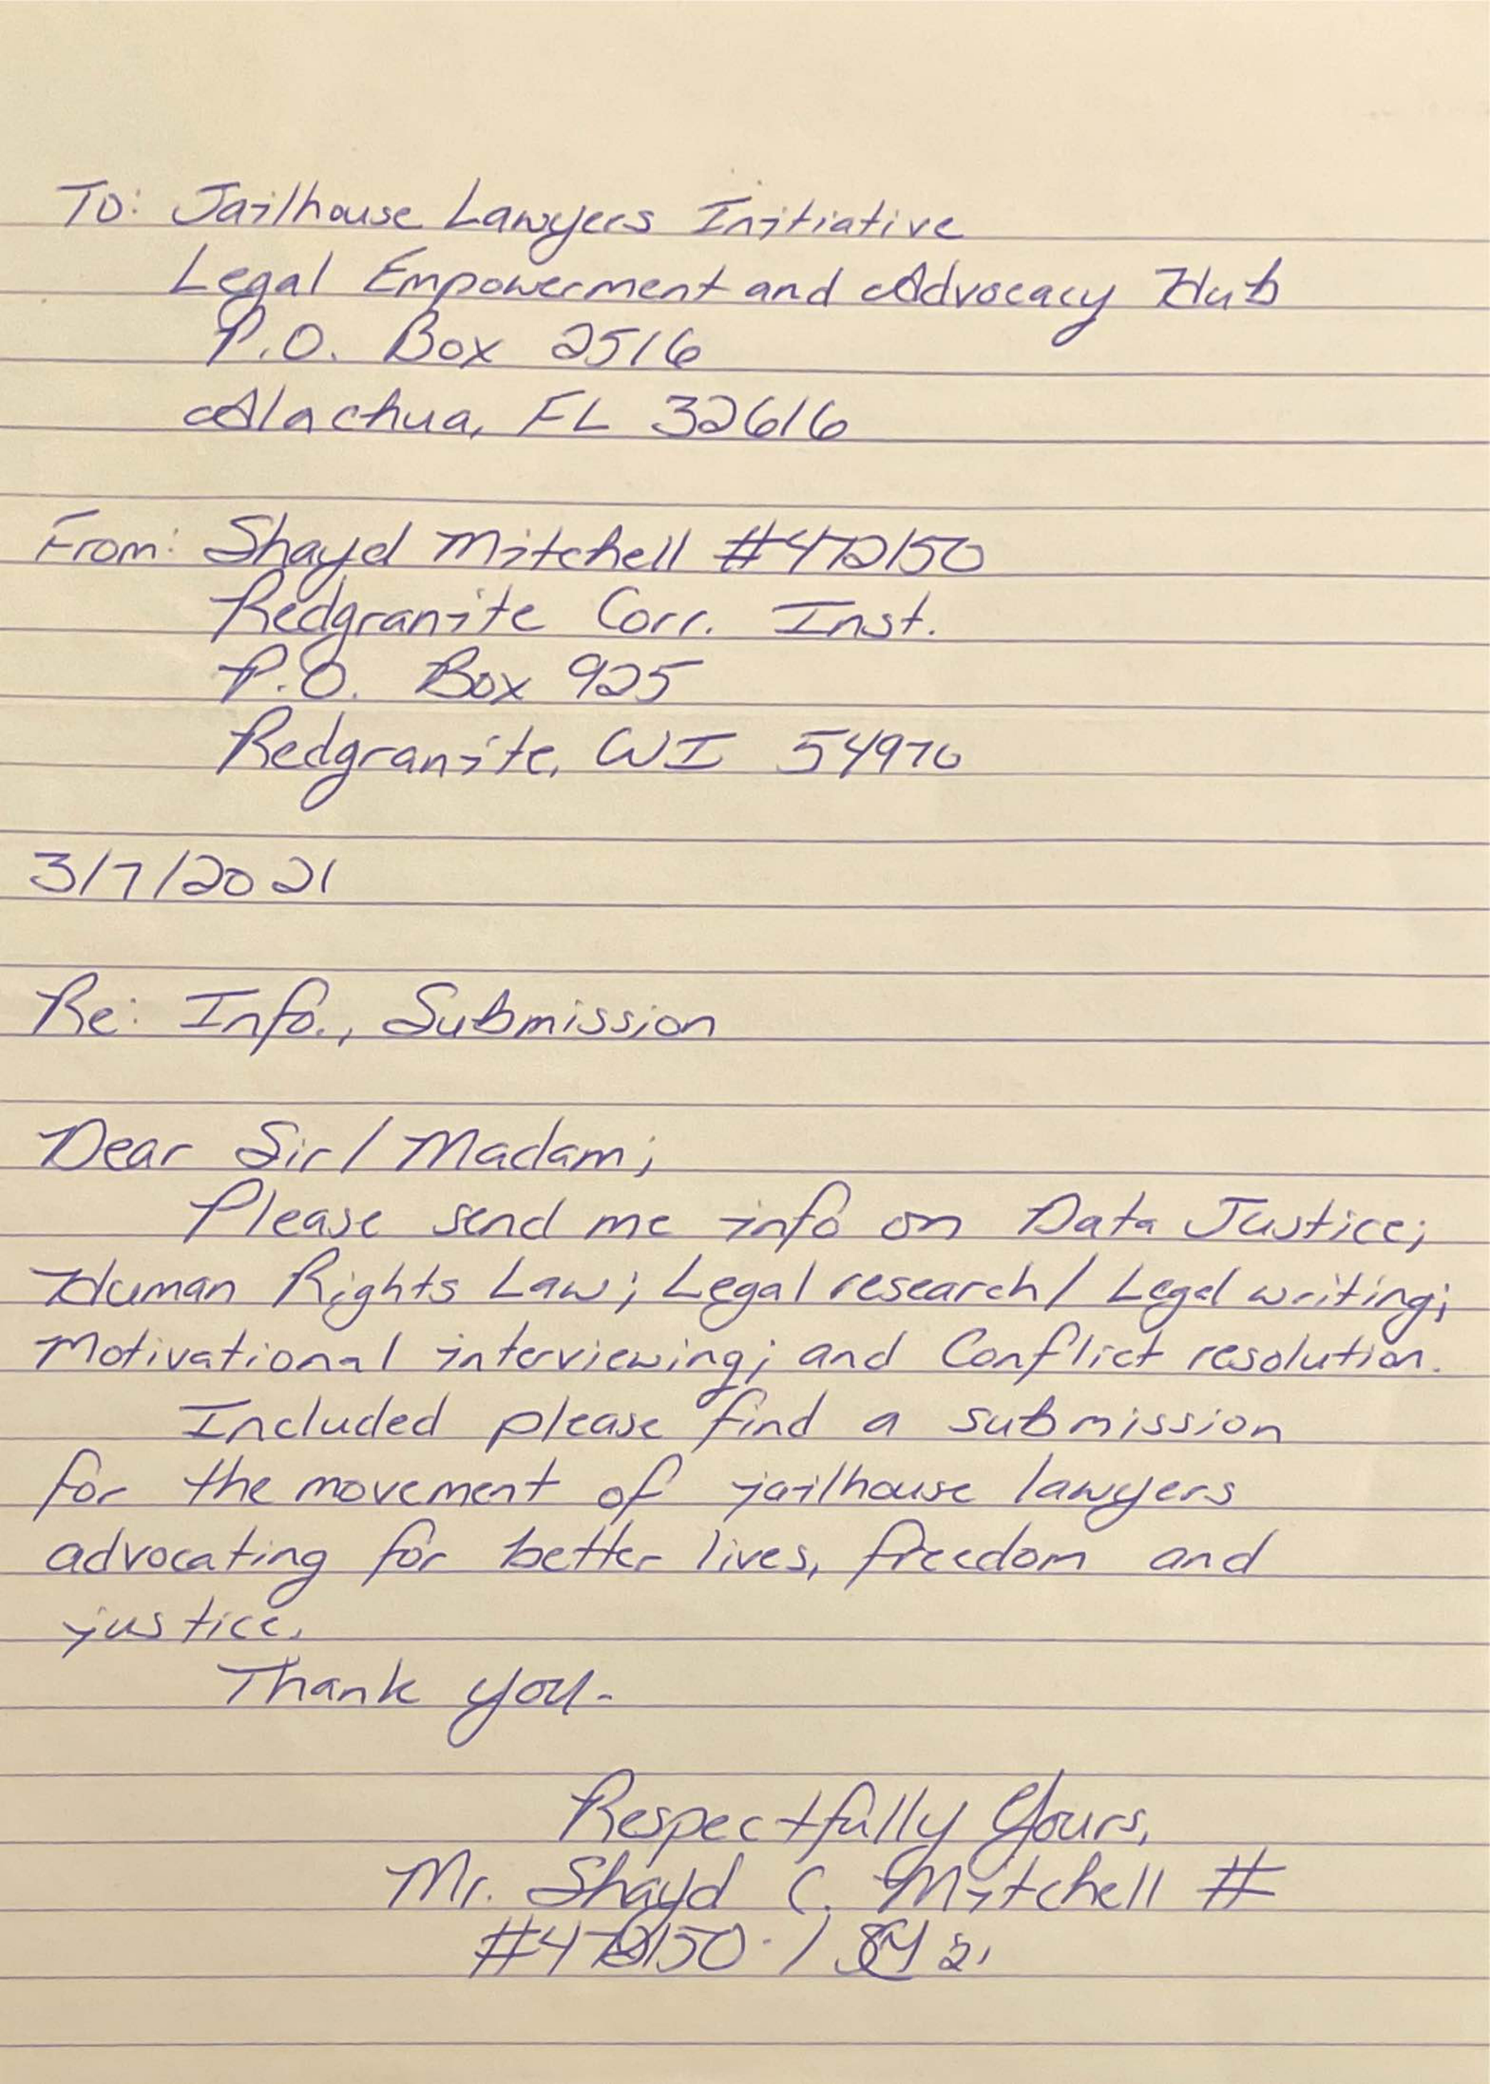 To: Jailhouse Lawyers Initiative
Legal Empowerment and Advocacy Hub
P.O. Box 2516
Alachua, FL 32616
From: Shayd Mitchell #472150
Redgranite Corr. Inst.
P.O. Box 925
Redgranite, WI 54970
3/7/2021
Re: Info., Submission
Dear Sir/Madam;
Please send me info on Data Justice;
Human Rights Law; Legal research/Legal writing;
Motivational interviewing; and Conflict resolution.
Included please find a submission
for the movement of jailhouse lawyers
advocating for better lives, freedom and
justice.
Thank you.
Respectfully Yours,
Mr. Shayd C. Mitchell #
#472150